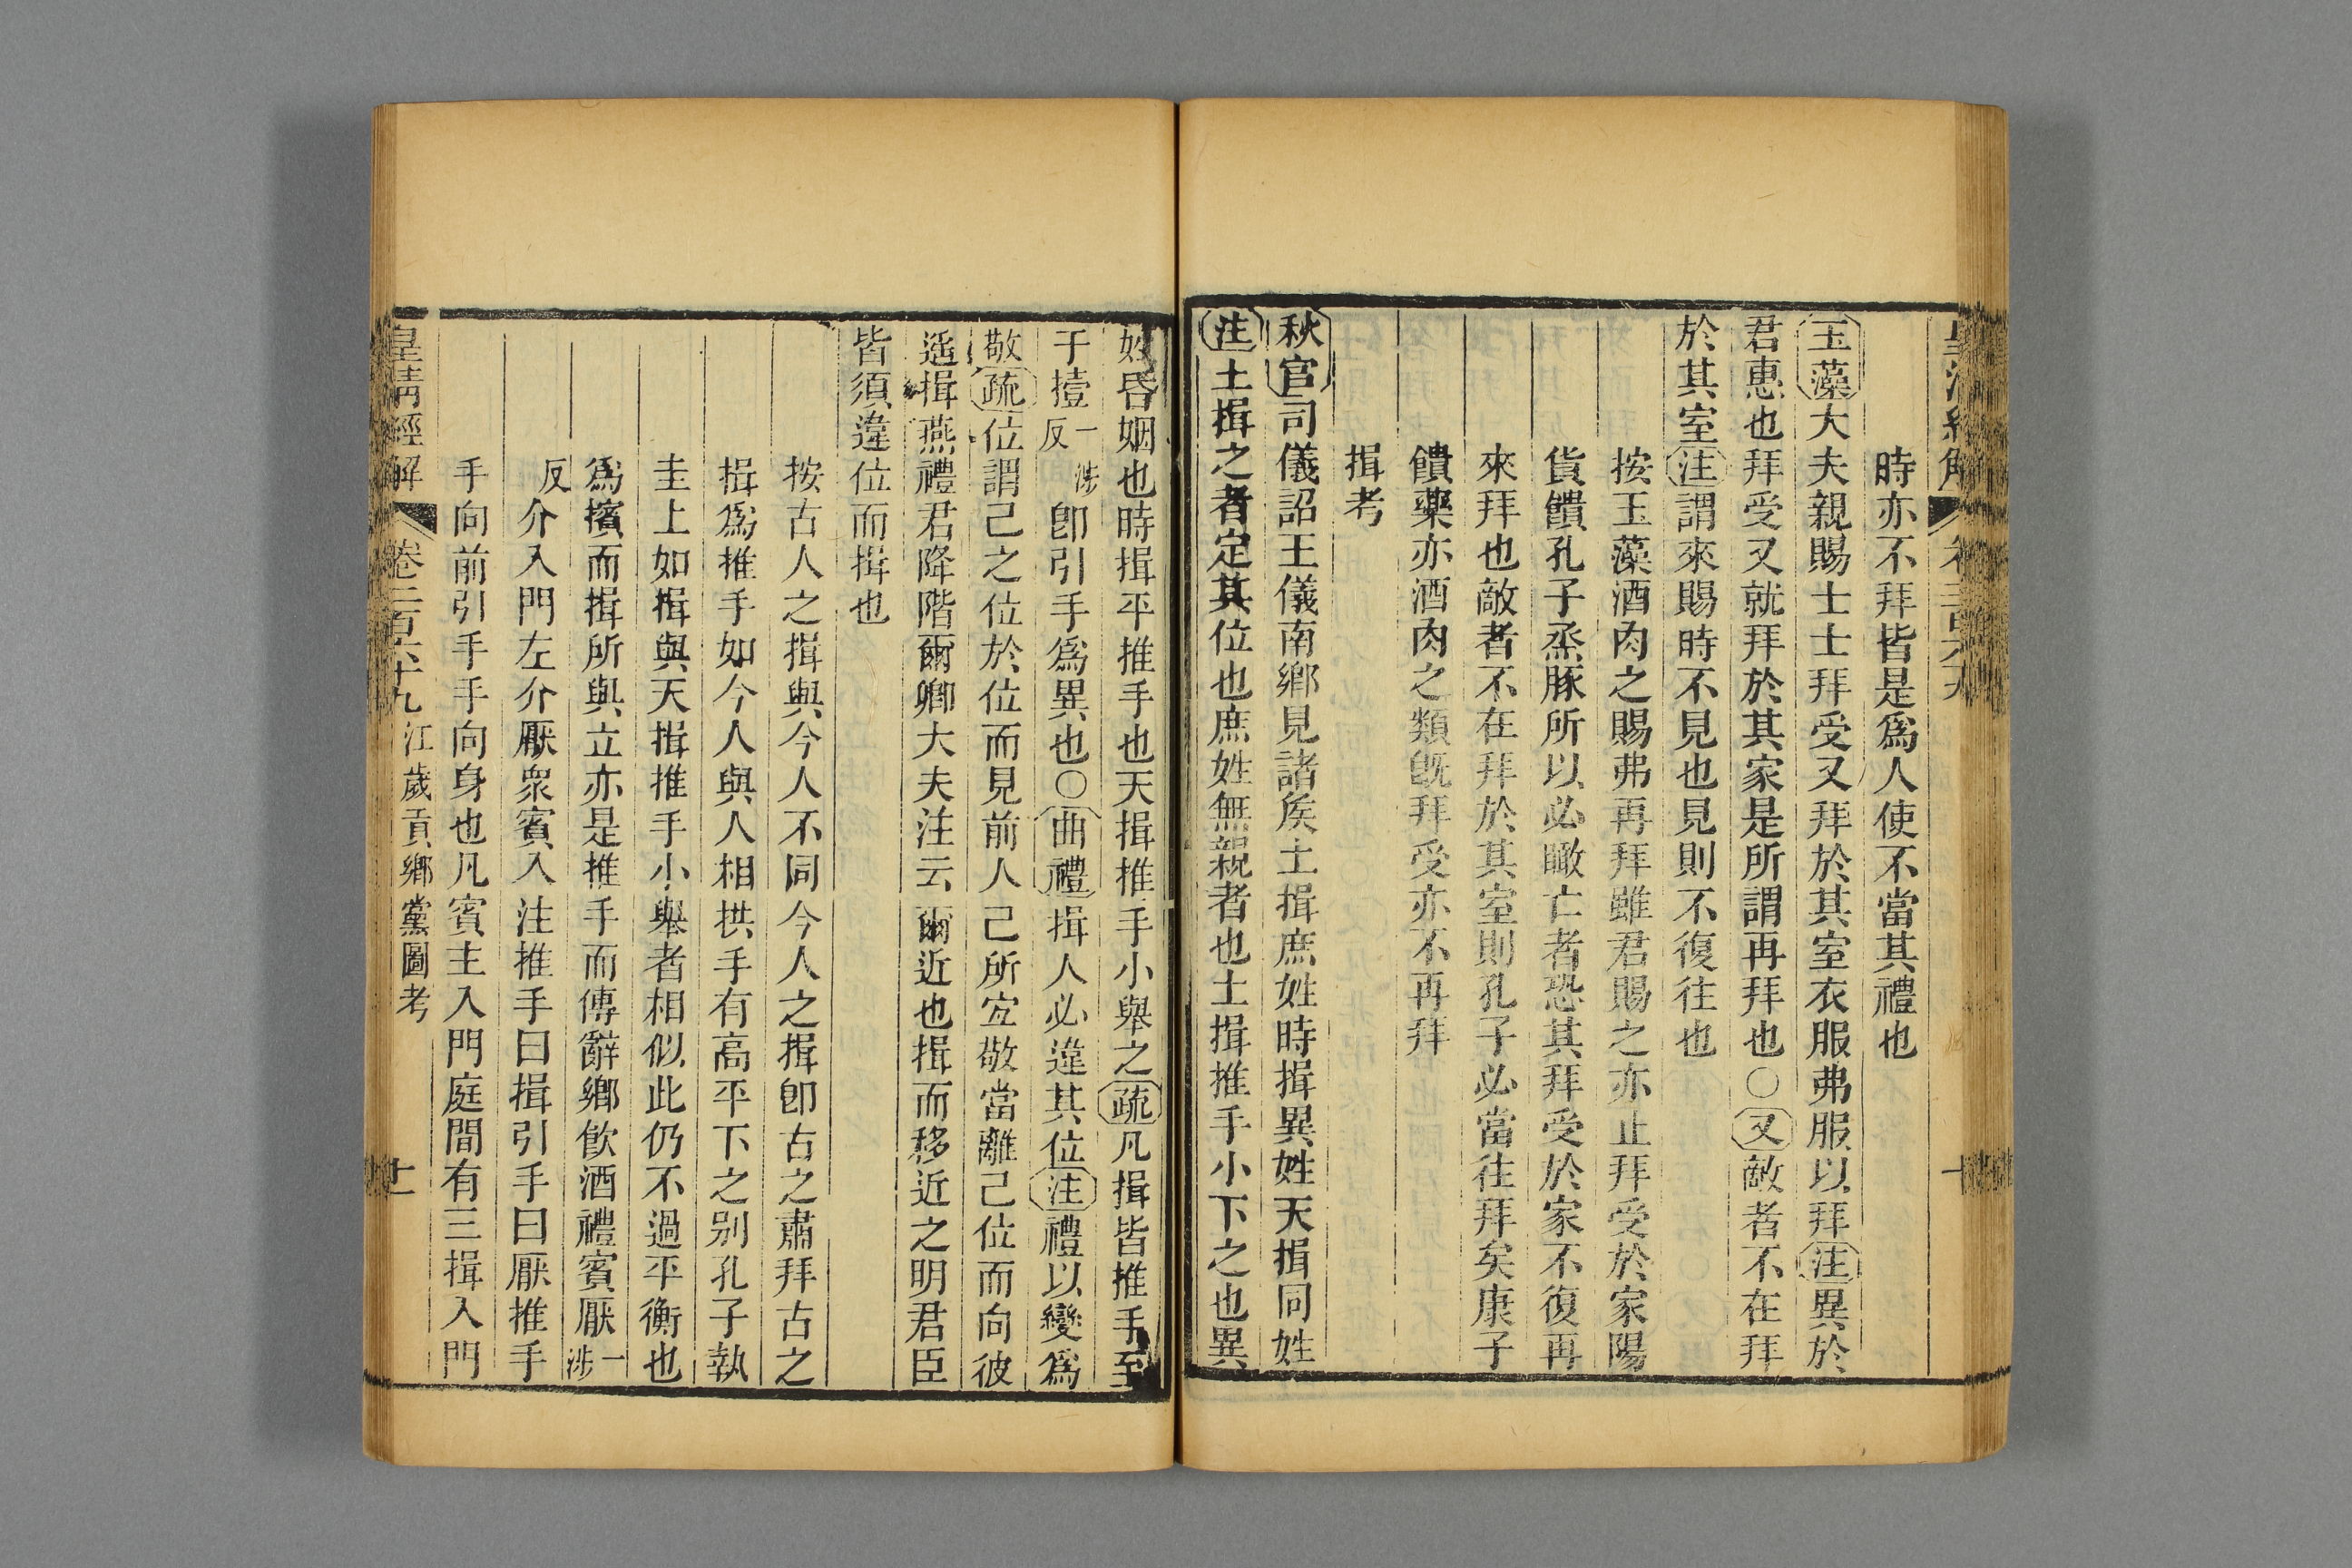 時亦不拜皆是爲人使不當其禮也
玉藻大夫親賜士士拜受又拜於其室衣服弗服以拜注異於
君惠也拜受又就拜於其家是所謂再拜也○又敵者不在拜
於其室注謂來賜時不見也見則不復往也
按玉藻酒肉之賜弗再拜雖君賜之亦止拜受於家陽
貨饋孔子烝豚所以必瞰亡者恐其拜受於家不復再
來拜也敵者不在拜於其室則孔子必當往拜矣康子
饋藥亦酒肉之類旣拜受亦不再拜
揖考
秋官司儀詔王儀南鄉見諸矦土揖庶姓時揖異姓天揖同姓
注土揖之者定其位也庶姓無親者也土揖推手小下之也異
姓昏姻也時揖平推手也天揖推手小舉之疏凡揖皆推手至
于撎一涉反卽引手爲異也○曲禮揖人必違其位注禮以變爲
敬疏位謂己之位於位而見前人己所宜敬當離己位而向彼
遥揖燕禮君降階爾卿大夫注云爾近也揖而移近之明君臣
皆須違位而揖也
按古人之揖與今人不同今人之揖卽古之肅拜古之
揖爲推手如今人與人相拱手有高平下之别孔子執
圭上如揖與天揖推手小舉者相似此仍不過平衡也
爲擯而揖所與立亦是推手而傳辭鄉飮酒禮賓厭一涉
反介入門左介厭衆賓入注推手曰揖引手曰厭推手
手向前引手手向身也凡賓主入門庭間有三揖入門
皇清經解 卷二百六十九 江歲貢鄉黨圖考 十一